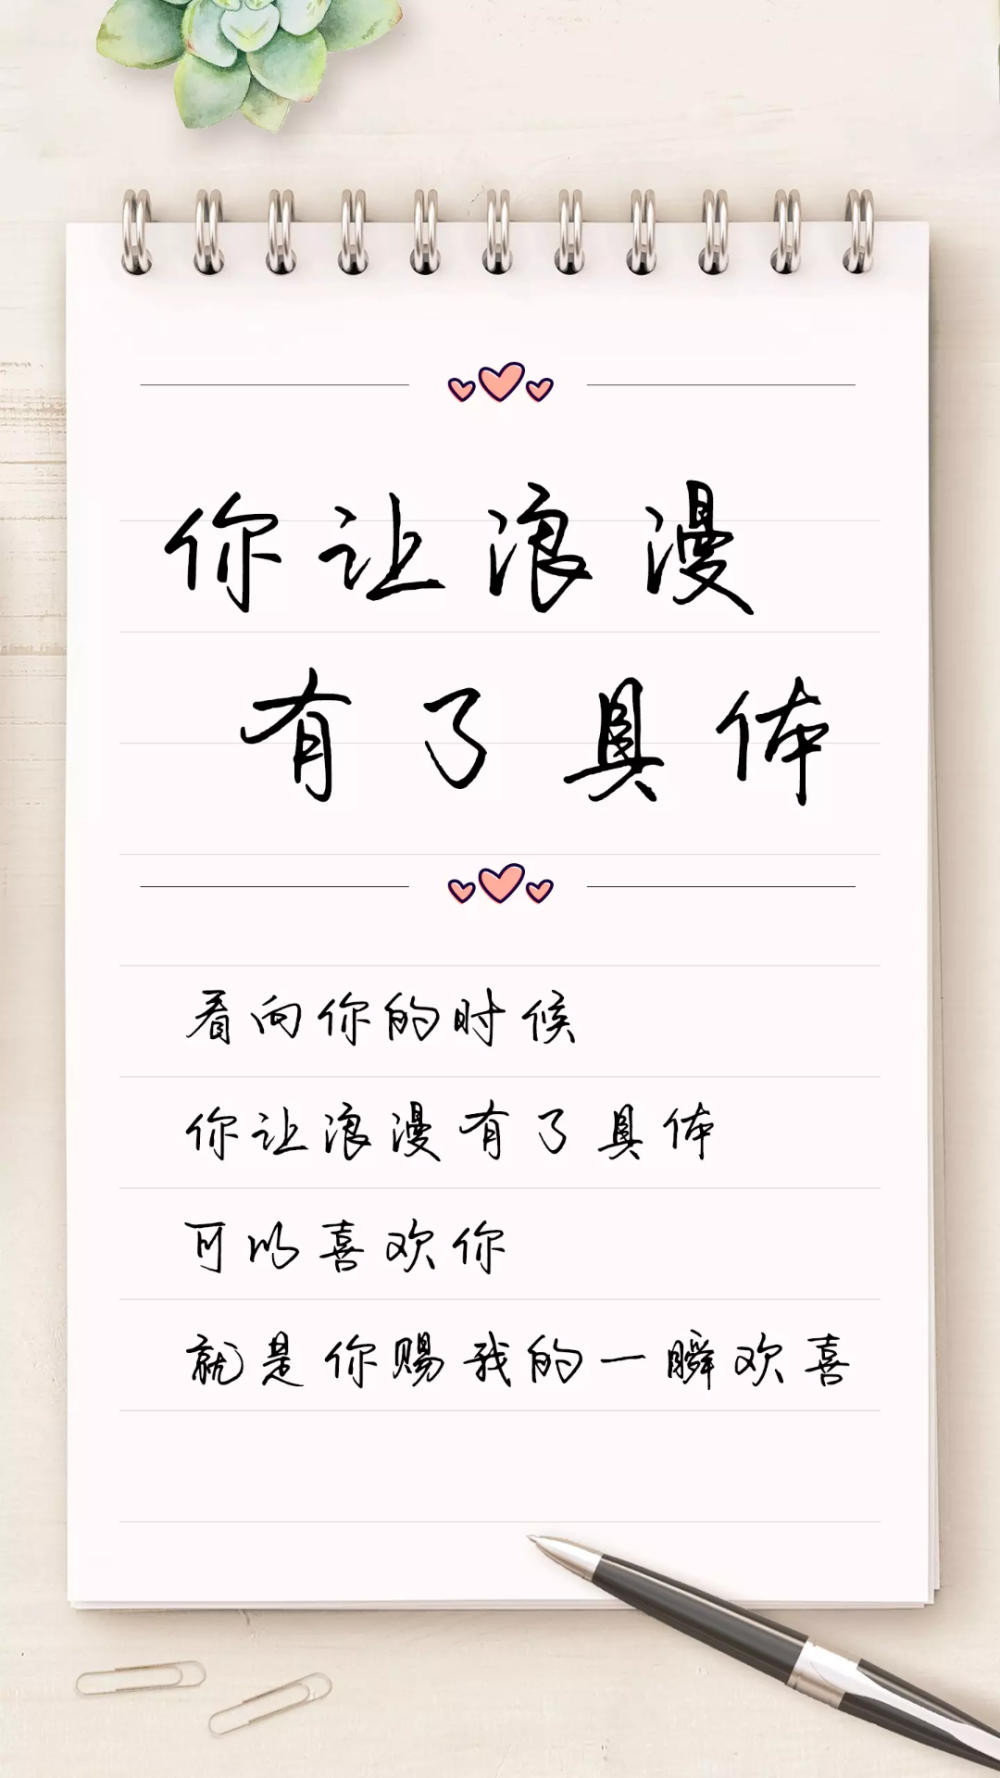 你让浪漫
有了具体
看向你的时候
你让浪漫有了具体
可以喜欢你
就是你赐我的一瞬欢喜